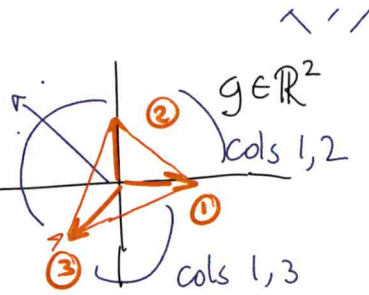 ② g∈ℝ²
cols 1,2
①
③ cols 1,3